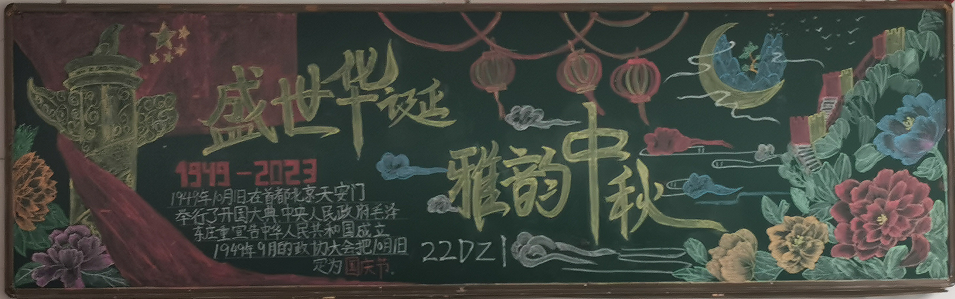 盛世华诞
雅韵中秋
1949-2023
1949年10月1日在首都北京天安门
举行了开国大典,中央人民政府毛泽
东庄重宣告中华人民共和国成立
1949年9月的政协大会把10月1日
定为国庆节。
22DZ1